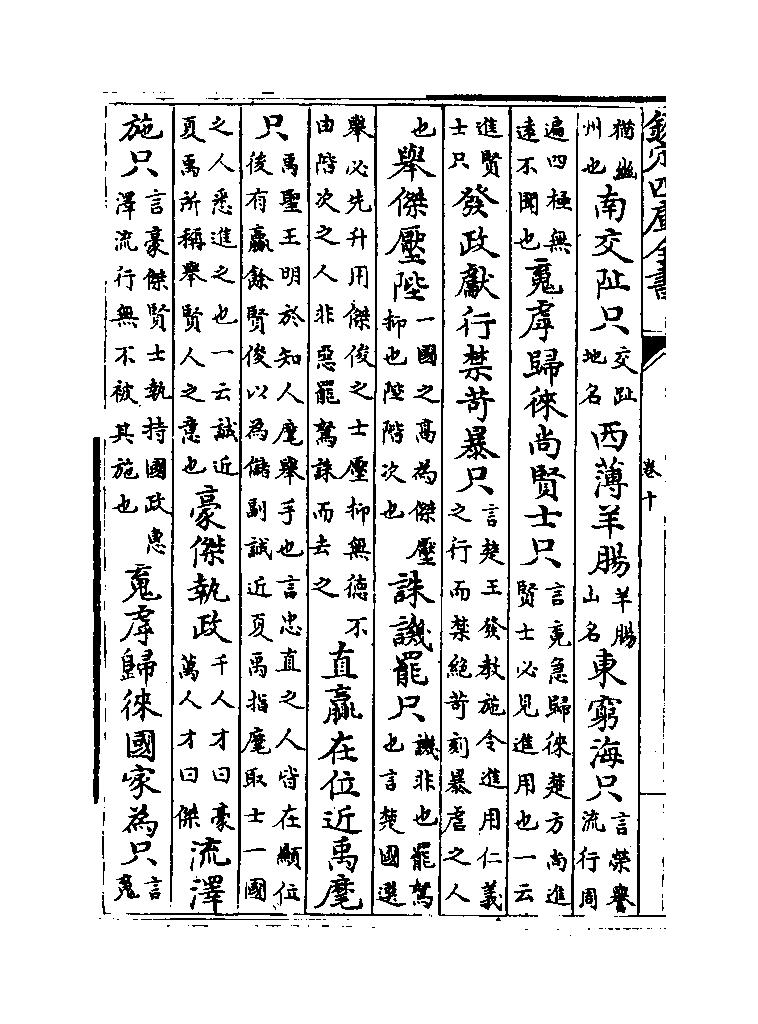 欽定四庫全書 卷十
猶幽州也南交阯只交趾地名西薄羊腸羊腸山名東窮海只言榮譽流行周
遍四極無遠不聞也魂虖歸徠尚賢士只言魂急歸徠楚方尚進賢士必見進用也一云
進賢士只發政獻行禁苛暴只言楚王發教施令進用仁義之行而禁絶苛刻暴虐之人
也舉傑壓陛一國之高為傑壓抑也陛階次也誅譏罷只譏非也罷駑也言楚國選
舉必先升用傑俊之士壓抑無德不由階次之人非惡罷駑誅而去之直贏在位近禹麾
只禹聖王明於知人麾舉手也言忠直之人皆在顯位後有贏餘賢俊以為儲副誠近夏禹指麾取士一國
之人悉進之也一云誠近夏禹所稱舉賢人之意也豪傑執政千人才曰豪萬人才曰傑流澤
施只言豪傑賢士執持國政惠澤流行無不被其施也魂虖歸徠國家為只言魂